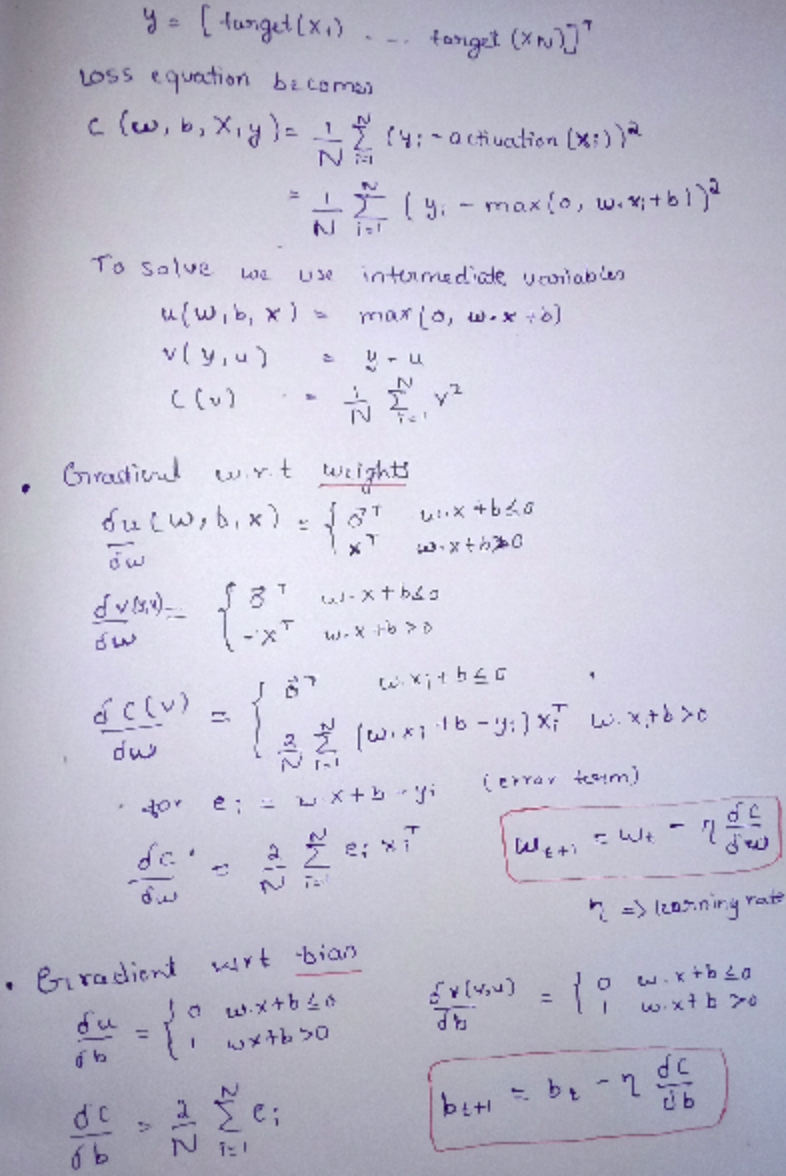 y = [target(x₁) ... target(x_N)]ᵀ
Loss equation becomes
C(w, b, X, y) = 1/N Σ_{i=1}^{N} (yᵢ - activation(xᵢ))²
= 1/N Σ_{i=1}^{N} (yᵢ - max(0, w.xᵢ+b))²
To solve we use intermediate variables
u(w, b, x) = max(0, w.x+b)
v(y, u) = y - u
C(v) = 1/N Σ_{i=1}^{N} v²
• Gradient w.r.t weights
∂u(w, b, x)/∂w = { 0⃗ᵀ w.x+b≤0
xᵀ w.x+b>0
∂v(y,u)/∂w = { 0⃗ᵀ w.x+b≤0
-xᵀ w.x+b>0
∂C(v)/∂w = { 0⃗ᵀ w.xᵢ+b≤0
2/N Σ_{i=1}^{N} (w.xᵢ+b-yᵢ)xᵢᵀ w.xᵢ+b>0
• for eᵢ = w.x+b-yᵢ (error term)
∂C/∂w = 2/N Σ_{i=1}^{N} eᵢ xᵢᵀ
w_{t+1} = w_t - η ∂C/∂w
η => learning rate
• Gradient wrt bias
∂u/∂b = { 0 w.x+b≤0
1 wx+b>0
∂v(y,u)/∂b = { 0 w.x+b≤0
1 w.x+b>0
∂C/∂b = 2/N Σ_{i=1}^{N} eᵢ
b_{t+1} = b_t - η ∂C/∂b